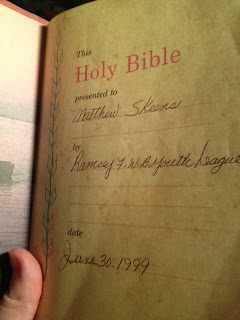 This
Holy Bible
presented to
Matthew Skeens
by
Ramsey F. W. B Youth League
date
June 30. 1999